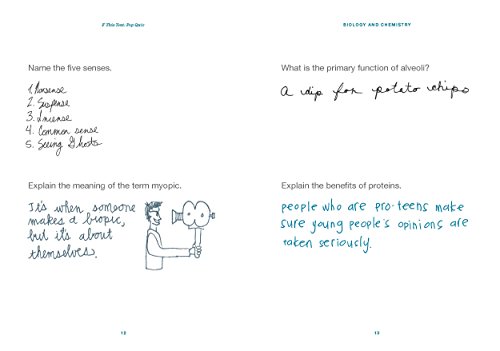 F This Test: Pop Quiz
Name the five senses.
1. Nonsense
2. Suspense
3. Incense
4. Common sense
5. Seeing Ghosts
Explain the meaning of the term myopic.
It's when someone
makes a biopic,
but it's about
themselves.
12
BIOLOGY AND CHEMISTRY
What is the primary function of alveoli?
A dip for potato chips
Explain the benefits of proteins.
people who are pro-teens make
sure young people's opinions are
taken seriously.
13